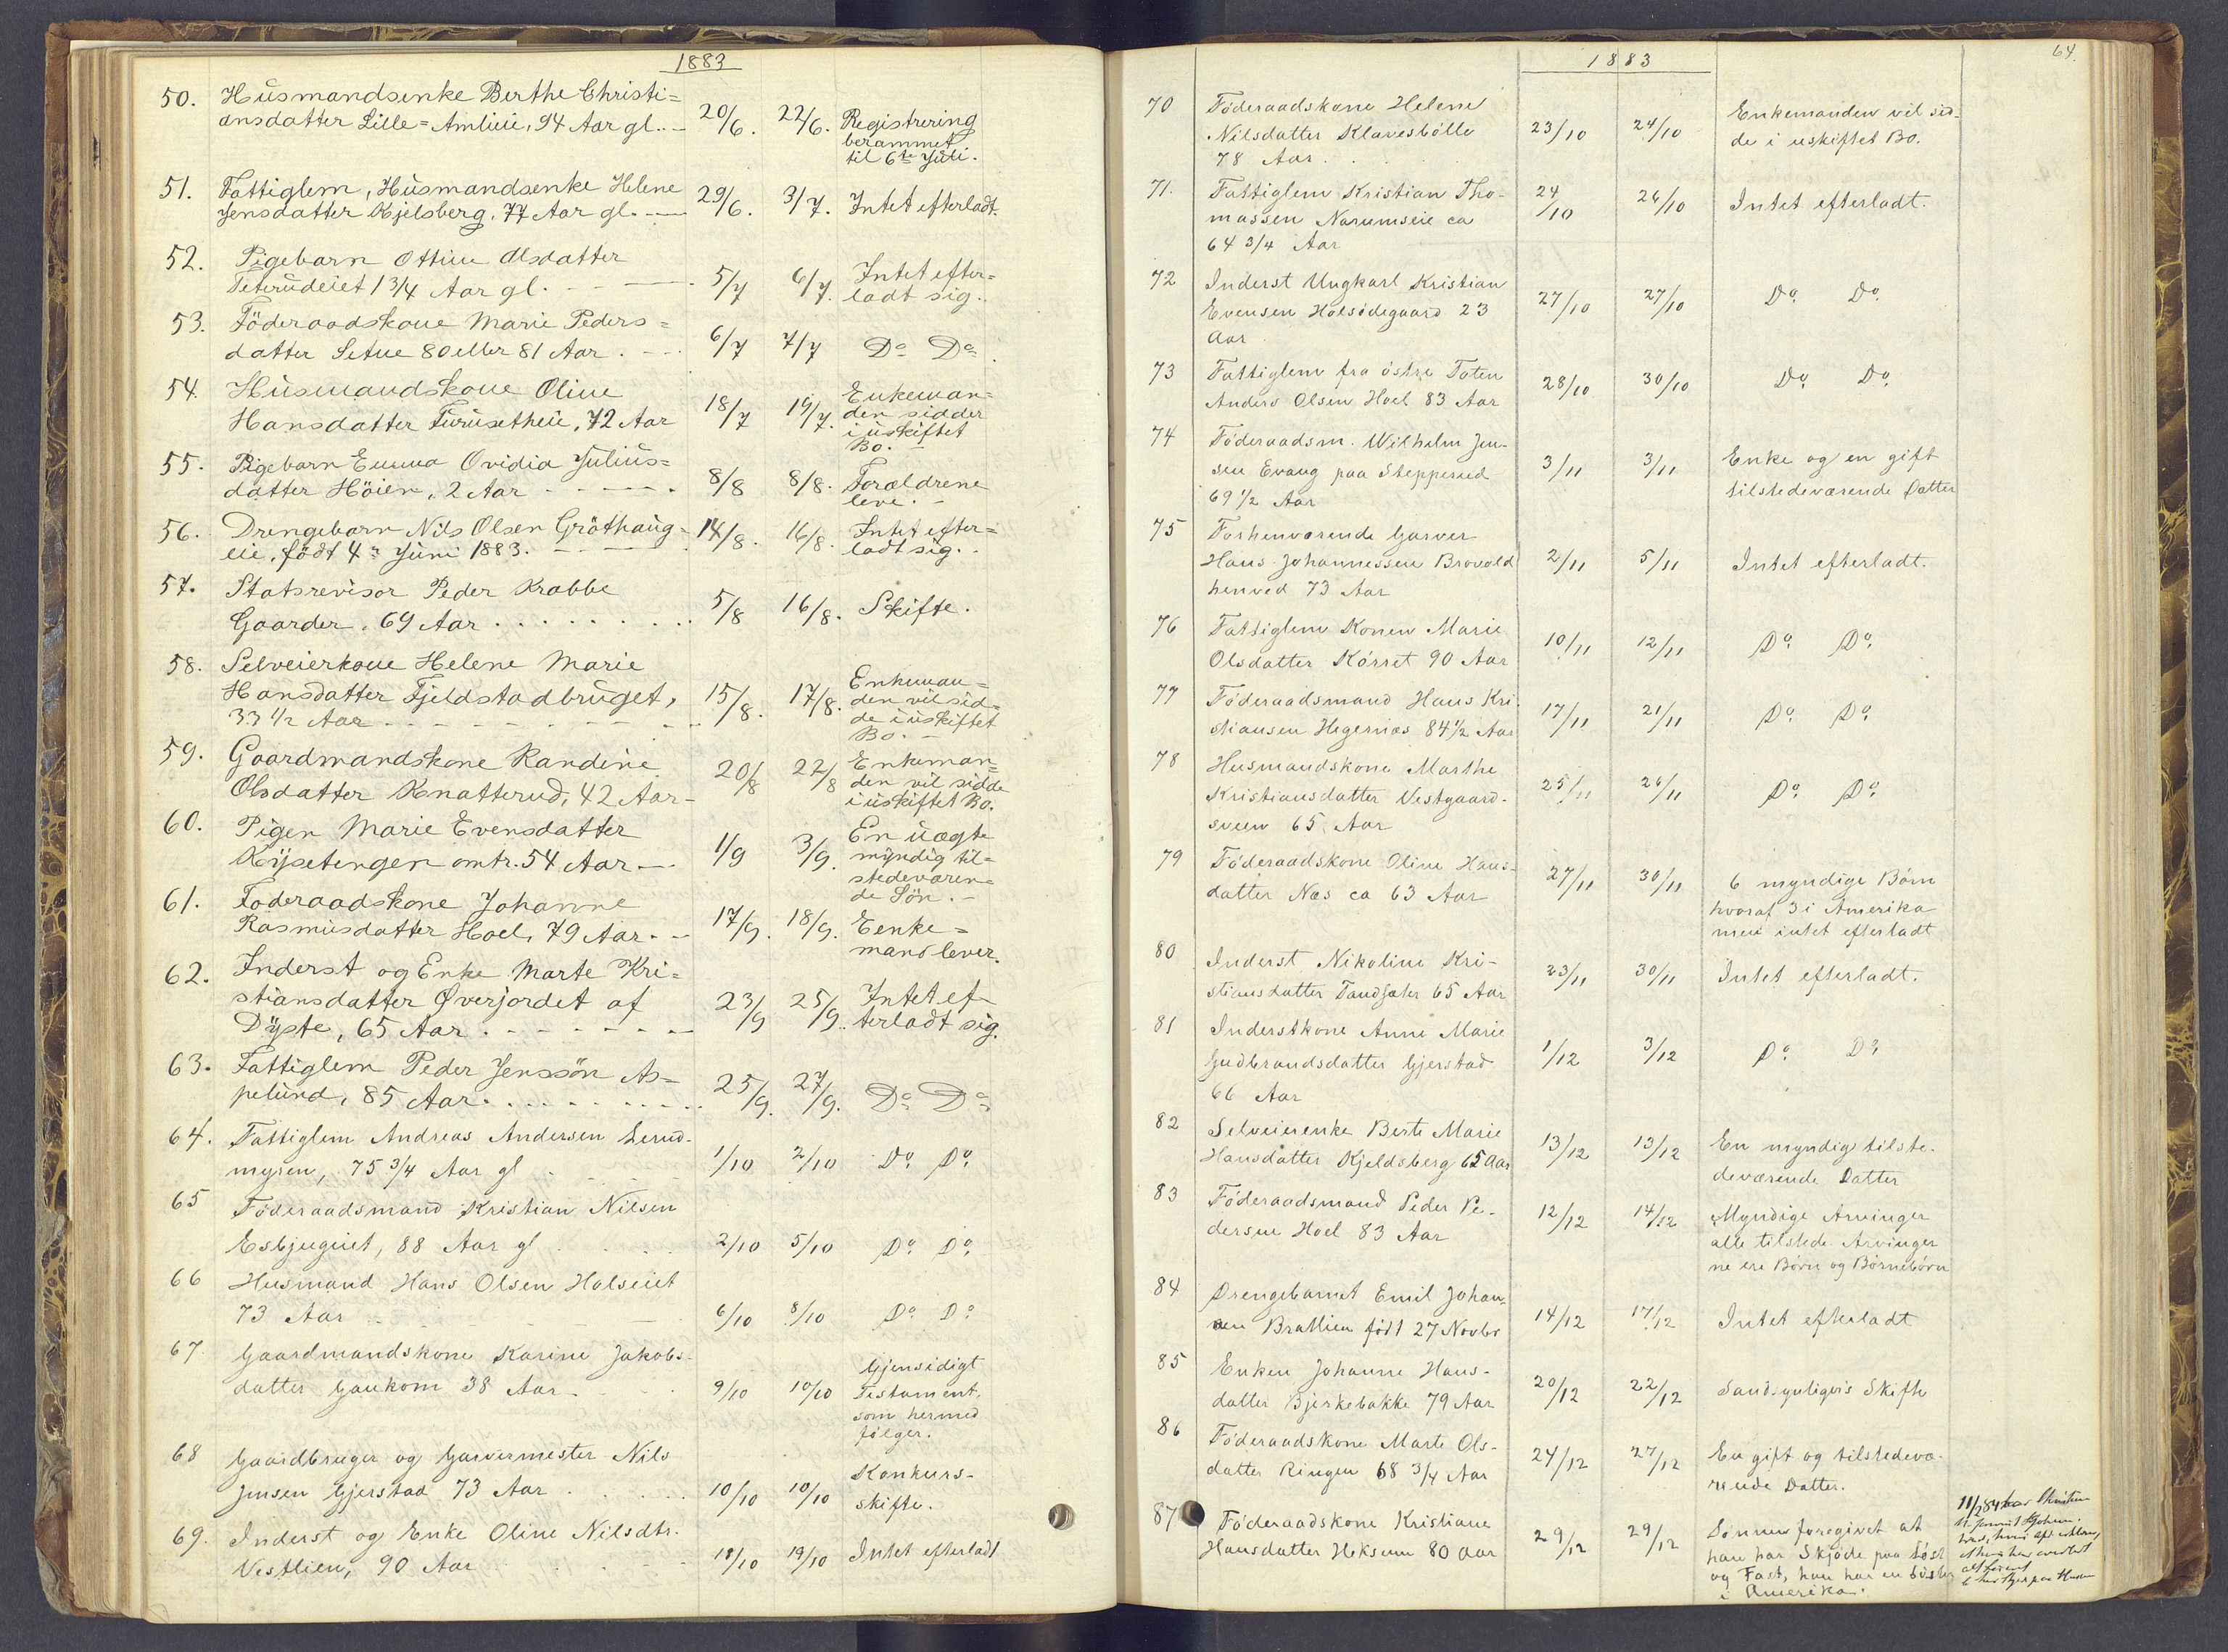 1883
50. Husmandsenke Berthe Christi=
ansdatter Lille=Amlieie, 94 Aar gl. 20/6. 22/6. Registrering
berammet
til 6te Juli.
51. Fattiglem, Husmandsenke Helene
Jensdatter Kjelsberg, 77 Aar gl. 29/6. 3/7. Intet efterladt.
52. Pigebarn Ottine Olsdatter
Teterudeiet 1 3/4 Aar gl. 5/7 6/7. Intet efter=
ladt sig.
53. Föderaadskone Marie Peders=
datter Setne 80 eller 81 Aar. 6/7 7/7 Do Do
54. Husmandskone Oline
Hansdatter Furusetheie, 72 Aar 18/7 19/7. Enkeman=
den sidder
i uskiftet
Bo.
55. Pigebarn Emma Ovidia Julius=
datter Höien, 2 Aar 8/8 8/8. Forældrene
leve.
56. Drengebarn Nils Olsen Gröthaug=
eie, födt 4de Juni 1883. 14/8. 16/8. Intet efter=
ladt sig.
57. Statsrevisor Peder Krabbe
Gaarder, 69 Aar 5/8 16/8. Skifte.
58. Selveierkone Helene Marie
Hansdatter Fjeldstadbruget,
33 1/2 Aar 15/8. 17/8. Enkeman=
den vil sid=
de i uskiftet
Bo.
59. Gaardmandskone Randine
Olsdatter Knatterud, 42 Aar 20/8 22/8 Enkeman=
den vil sidde
i uskiftet Bo.
60. Pigen Marie Evensdatter
Kysetengen omtr. 54 Aar 1/9 3/9. En uægte
myndig til=
stedeværen=
de Sön.
61. Föderaadskone Johanne
Rasmusdatter Hoel, 79 Aar. 17/9. 18/9. Eenke=
mand lever.
62. Inderst og Enke Marte Kri=
stiansdatter Øverjordet af
Dyste, 65 Aar. 23/9 25/9. Intet ef=
terladt sig.
63. Fattiglem Peder Jenssön As=
pelund, 85 Aar. 25/9. 27/9. Do Do
64. Fattiglem Andreas Andersen Lerud-
mysen, 75 3/4 Aar gl 1/10 2/10 Do Do
65 Föderaadsmand Kristian Nilsen
Esbjugeiet, 88 Aar gl 2/10 5/10 Do Do
66 Husmand Hans Olsen Halseiet
73 Aar 6/10 8/10 Do Do
67. Gaardmandskone Karine Jakobs-
datter Gaukom 38 Aar. 9/10 10/10 Gjensidigt
Testament,
som hermed
fölger.
68 Gaardbruger og Garvermester Nils
Jensen Gjerstad 73 Aar 10/10 10/10 Konkurs-
skifte.
69. Inderst og Enke Oline Nilsdtr.
Vestlien, 90 Aar 18/10 19/10 Intet efterladt
1883
64.
70 Föderaadskone Helene
Nilsdatter Klavesbölle
78 Aar. 23/10 24/10 Enkemanden vil sid-
de i uskiftet Bo.
71. Fattiglem Kristian Tho-
massen Narumseie ca
64 3/4 Aar 24/10 26/10 Intet efterladt.
72 Inderst Ungkarl Kristian
Evensen Halsödegaard 23
Aar 27/10 27/10 Do Do
73 Fattiglem fra östre Toten
Anders Olsen Hoel 83 Aar 28/10 30/10 Do Do
74 Föderaadsm. Wilhelm Jen-
sen Evang paa Stepperud
69 1/2 Aar 3/11 3/11 Enke og en gift
tilstedeværende Datter
75 Forhenværende Garver
Hans Johannessen Bravold
henved 73 Aar 2/11 5/11 Intet efterladt.
76 Fattiglem Konen Marie
Olsdatter Körset 90 Aar 10/11 12/11 Do Do
77 Föderaadsmand Hans Kri-
stiansen Hegernæs 84 1/2 Aar 17/11 21/11 Do Do
78 Husmandskone Marthe
Kristiansdatter Vestgaard-
sveen 65 Aar 25/11 26/11 Do Do
79 Föderaadskone Oline Hans-
datter Næs ca 63 Aar 27/11 30/11 6 myndige Börn
hvoraf 3 i Amerika
men intet efterladt
80 Inderst Nikoline Kri-
stiansdatter Tandsæter 65 Aar 23/11 30/11 Intet efterladt.
81 Inderstkone Anne Marie
Gudbrandsdatter Gjerstad
66 Aar 1/12 3/12 Do Do
82 Selveierenke Berte Marie
Hansdatter Kjeldsberg 65 Aar 13/12 13/12 En myndig tilste-
deværende Datter
83 Föderaadsmand Peder Pe-
dersen Hoel 83 Aar 12/12 14/12 Myndige Arvinger
alle tilstede. Arvinger
ne ere Börn og Börnebörn
84 Drengebarnet Emil Johan-
sen Bratlien födt 27 Novbr 14/12 17/12 Intet efterladt
85 Enken Johanne Hans-
datter Bjerkebakke 79 Aar 20/12 22/12 Sandsynligvis Skifte
86 Föderaadskone Marte Ols-
datter Ringen 68 3/4 Aar 24/12 27/12 En gift og tilstedevæ-
rende Datter.
87 Föderaadskone Kristiane
Hansdatter Heksum 80 Aar 29/12 29/12 Sönnen foregivet at
han har Skjöde paa Löst
og Fast, han har en Söster
i Amerika.
11/2 84